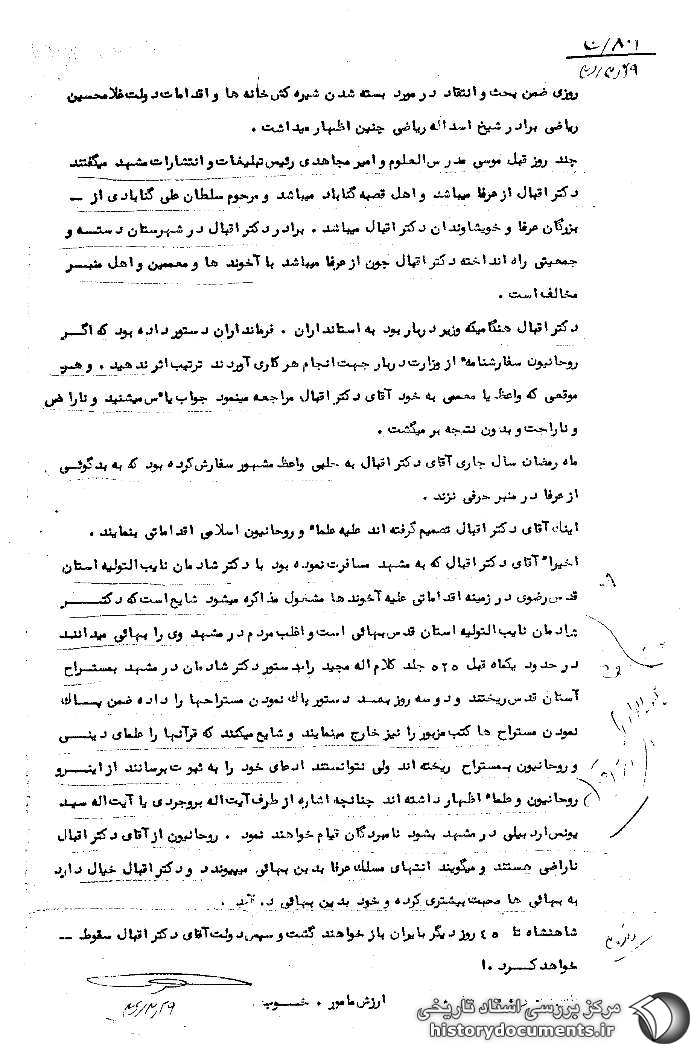 ۸۰۱/ت
روزی ضمن بحث و انتقاد در مورد بسته شدن شیره کش خانه ها و اقدامات دولت غلامحسین
ریاضی برادر شیخ اسداله ریاضی چنین اظهار میداشت .
چند روز قبل موسی مدرس العلوم و امیر مجاهدی رئیس تبلیغات و انتشارات مشهد میگفتند
دکتر اقبال از عرفا میباشد و اهل قصبه گناباد میباشد و مرحوم سلطان علی گنابادی از —
بزرگان عرفا و خویشاوندان دکتر اقبال میباشد . برادر دکتر اقبال در شهرستان دسته و
جمعیتی راه انداخته دکتر اقبال چون از عرفا میباشد با آخوند ها و معممین و اهل منبر
مخالف است .
دکتر اقبال هنگامیکه وزیر دربار بود به استانداران . فرمانداران دستور داده بود که اگر
روحانیون سفارشنامه از وزارت دربار جهت انجام هر کاری آوردند ترتیب اثر ندهید . و هر
موقعی که واعظ یا معممی به خود آقای دکتر اقبال مراجعه مینمود جواب یاس میشنید و ناراضی
و ناراحت و بدون نتجه بر میگشت .
ماه رمضان سال جاری آقای دکتر اقبال به حلبی واعظ مشهور سفارش کرده بود که به بدگوئی
از عرفا در منبر حرفی نزند .
اینک آقای دکتر اقبال تصمیم گرفته اند علیه علماء و روحانیون اسلامی اقداماتی بنمایند .
اخیراً آقای دکتر اقبال که به مشهد مسافرت نموده بود با دکتر شادمان نایب التولیه استان
قدس رضوی در زمینه اقداماتی علیه آخوندها مشغول مذاکره میشود شایع است که دکتر
شادمان نایب التولیه استان قدس بهائی است و اغلب مردم در مشهد وی را بهائی میدانند
در حدود یکماه قبل ۵۲۵ جلد کلام اله مجید را بدستور دکتر شادمان در مشهد بمستراح
آستان قدس ریختند و دو سه روز بعد دستور پاک نمودن مستراحها را داده ضمن پساک
نمودن مستراح ها کتب مزبور را نیز خارج مینمایند و شایع میکنند که قرآنها را علمای دینی
و روحانیون بمستراح ریخته اند ولی نتوانستند ادعای خود را به ثبوت برسانند از اینرو
روحانیون و علماء اظهار داشته اند چنانچه اشاره از طرف آیت اله بروجردی یا آیت اله سید
یونس اردبیلی در مشهد بشود نامبردگان قیام خواهند نمود . روحانیون از آقای دکتر اقبال
ناراضی هستند و میگویند انتهای مسلک عرفا بدین بهائی میپیوندد و دکتر اقبال خیال دارد
به بهائی ها محبت بیشتری کرده و خود بدین بهائی در آید .
شاهنشاه تا ۴۵ روز دیگر بایران باز خواهند گشت و سپس دولت آقای دکتر اقبال سقوط —
خواهد کرد .
ارزش مامور . خسوب
مرکز بررسی اسناد تاریخی
historydocuments.ir